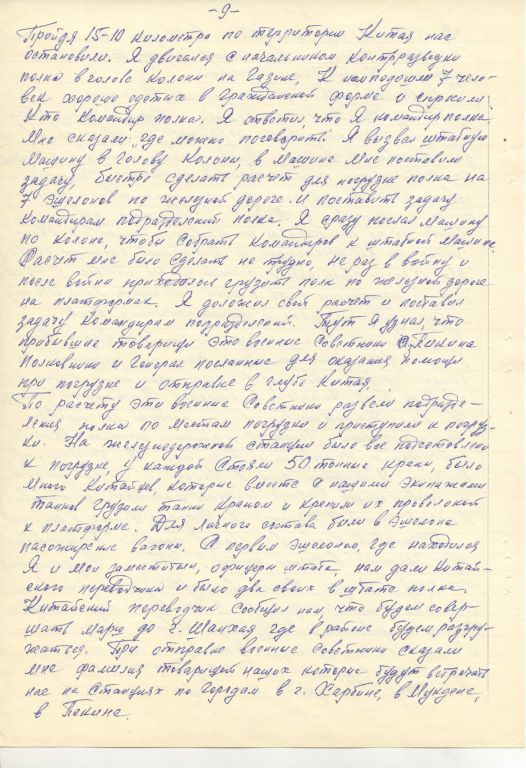 -9-
Пройдя 15-10 километра по территории Китая нас
остановили. Я двигался с начальником контрразведки
полка в голове колоны на Газике, К нам подошли 7 чело-
век хорошо одетых в гражданской форме и спросили,
Кто командир полка. Я ответил, что Я командир полка
Мне сказали где можно поговорить. Я вызвал штабную
машину в голову колоны, в машине мне поставили
задачу, быстро сделать расчет для погрузке полка на
7 эшелонов по железной дороге. И поставить задачу
командирам подразделений полка. Я сразу послал машину
по колоне, чтобы собрать командиров к штабной машине.
Расчет мне было сделать не трудно, не раз в войну и
после войны приходилось грузить полк по железной дороге
на платформах. Я доложил свой расчет и поставил
задачу командирам подразделений. Тут Я узнал, что
прибывшие товарищи это военные Советники с Пикина
Полковники и Генерал посланные для оказания помощи
при погрузке и отправке в глубь Китая.
По расчету эти военные Советники развели подразде-
ления полка по местам погрузки и приступили к погруз-
ки. На железнодорожной станции было все подготовлено
к погрузке, у каждой стояли 50 тонные краны, было
много Китайцев которые вместе с нашими экипажами
танков грузили танки краном и крепили их проволокой
к платформе. Для личного состава были в эшелона
пасожирские вагоны. С первым эшелоном, где находился
Я и мои заместители, офицеры штаба, нам дали китай-
ского переводчика и было два своих в штабе полка.
Китайский переводчик сообщил нам, что будем совер-
шать марш до г. Шанхая где в районе будем разгру-
жаться. При отправке военные Советники сказали
мне фамилия товарищей наших которые будут встречать
нас на станциях по городам в г. Харбине, в Мукдене,
в Пекине.